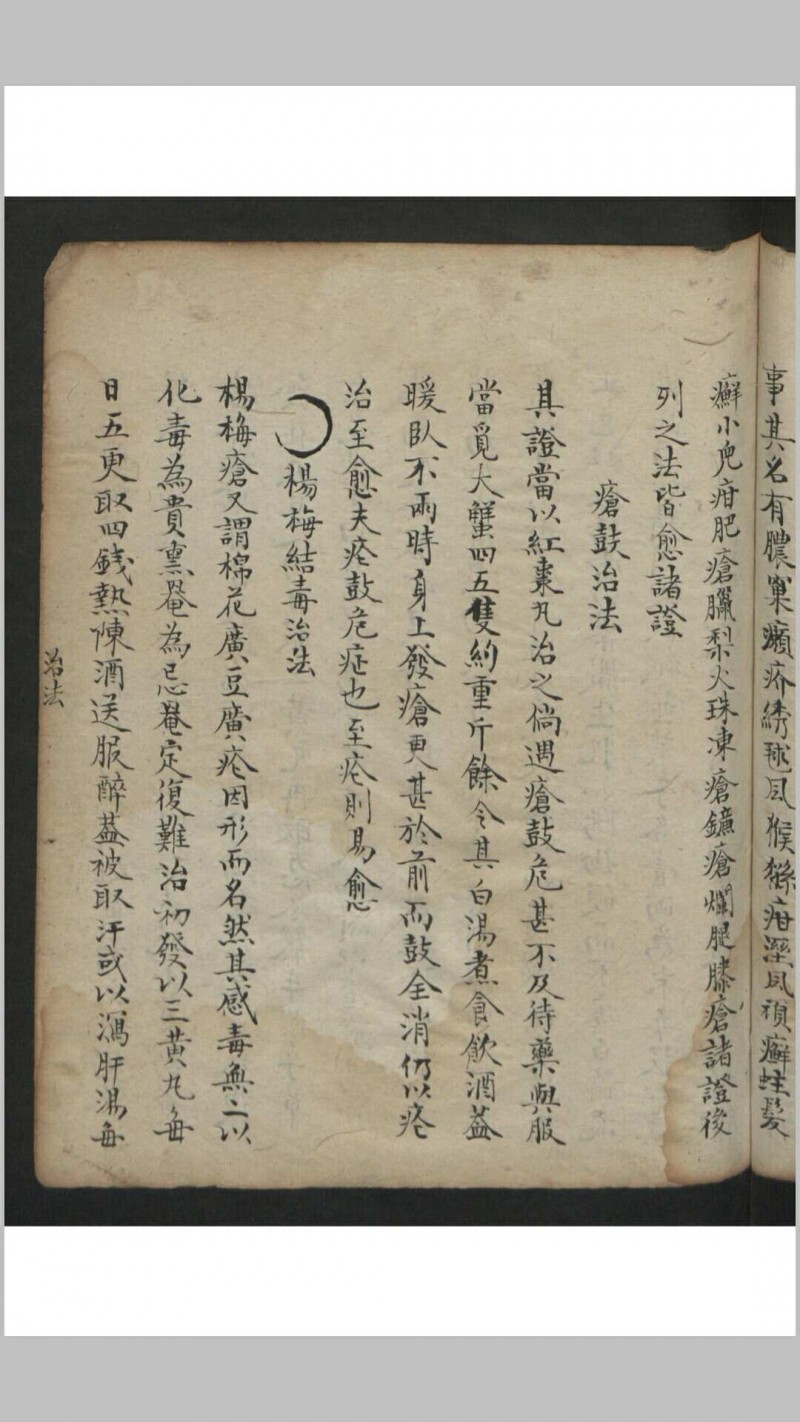 事其名有膿窠癩疥綉毬風猴猻疳溼風頑癬蛀髮
癬小兒疳肥瘡臘梨火珠凍瘡鐮瘡爛腿膝瘡諸證後
列之法皆愈諸證
瘡鼓治法
其證當以紅棗丸治之倘遇瘡鼓危甚不及待藥與服
當覓大蟹四五隻約重斤餘令其白湯煮食飲酒葢
暖臥不兩時身上發瘡更甚於前而鼓全消仍以疮
治至愈夫疮鼓危症也至疮則易愈
楊梅結毒治法
楊梅瘡又謂棉花廣豆廣疮因形而名然其感毒無二以
化毒為貴熏罨為忌罨定復難治初發以三黃丸每
日五更取四錢熱陳酒送服醉葢被取汗或以瀉肝湯每
治法